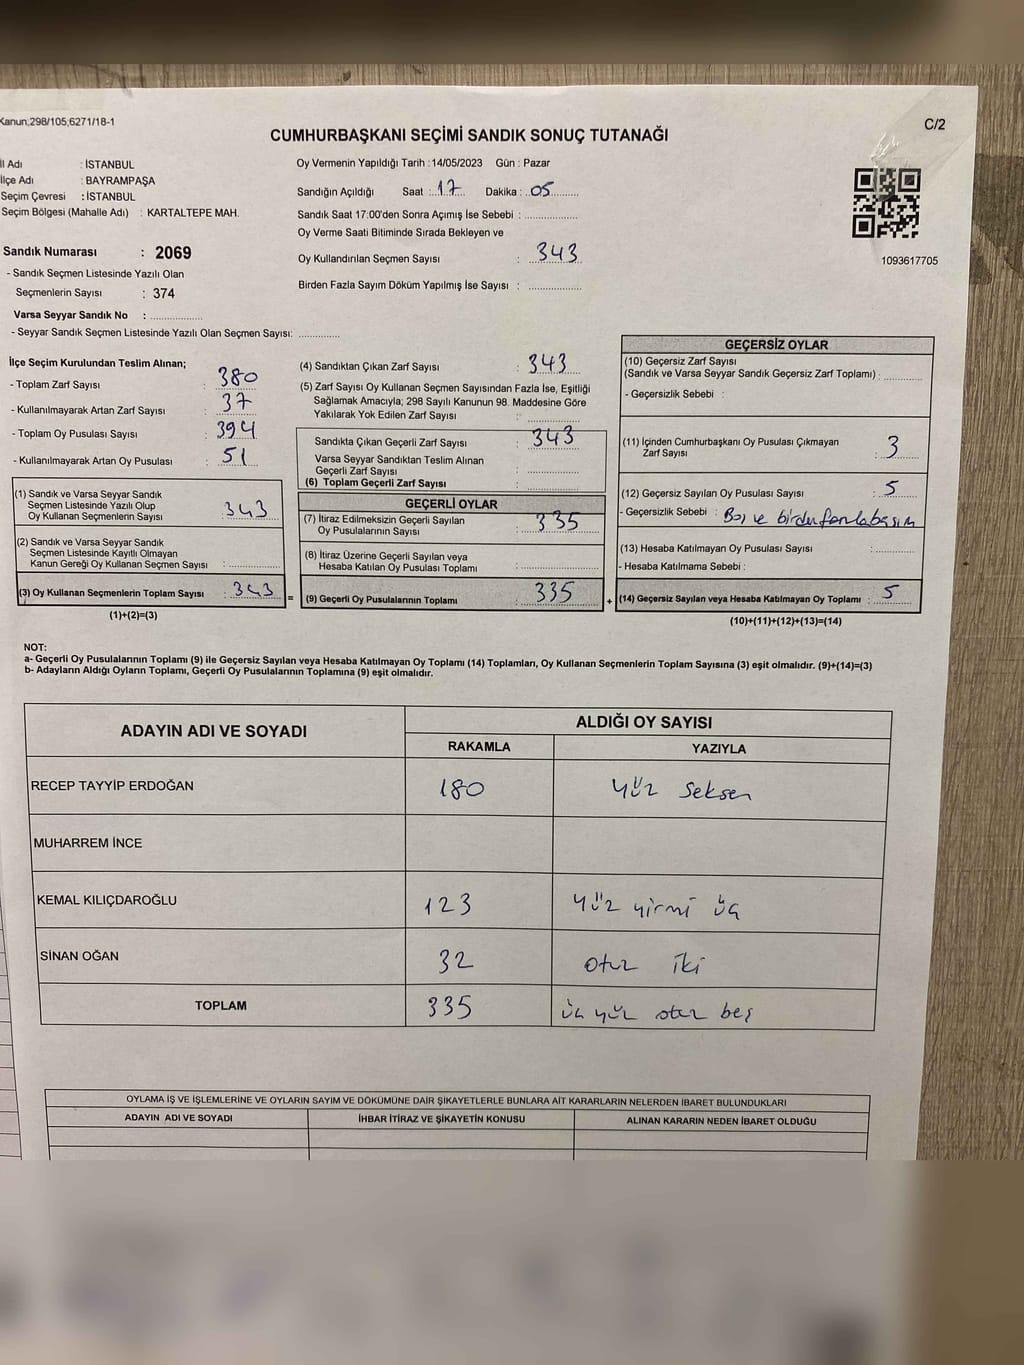 Kanun;298/105;6271/18-1
C/2
CUMHURBAŞKANI SEÇİMİ SANDIK SONUÇ TUTANAĞI
İl Adı : İSTANBUL
İlçe Adı : BAYRAMPAŞA
Seçim Çevresi : İSTANBUL
Seçim Bölgesi (Mahalle Adı) : KARTALTEPE MAH.
Sandık Numarası : 2069
- Sandık Seçmen Listesinde Yazılı Olan
Seçmenlerin Sayısı : 374
Varsa Seyyar Sandık No : ..............
- Seyyar Sandık Seçmen Listesinde Yazılı Olan Seçmen Sayısı: ............
Oy Vermenin Yapıldığı Tarih :14/05/2023 Gün : Pazar
Sandığın Açıldığı Saat :..17.. Dakika :..05........
Sandık Saat 17:00'den Sonra Açımış İse Sebebi : ................
Oy Verme Saati Bitiminde Sırada Bekleyen ve
Oy Kullandırılan Seçmen Sayısı : 343
Birden Fazla Sayım Döküm Yapılmış İse Sayısı : ................
1093617705
İlçe Seçim Kurulundan Teslim Alınan;
- Toplam Zarf Sayısı : 380
- Kullanılmayarak Artan Zarf Sayısı : 37
- Toplam Oy Pusulası Sayısı : 394
- Kullanılmayarak Artan Oy Pusulası : 51
(1) Sandık ve Varsa Seyyar Sandık
Seçmen Listesinde Yazılı Olup
Oy Kullanan Seçmenlerin Sayısı : 343
(2) Sandık ve Varsa Seyyar Sandık
Seçmen Listesinde Kayıtlı Olmayan
Kanun Gereği Oy Kullanan Seçmen Sayısı :................
(3) Oy Kullanan Seçmenlerin Toplam Sayısı : 343
(1)+(2)=(3)
=
(4) Sandıktan Çıkan Zarf Sayısı : 343
(5) Zarf Sayısı Oy Kullanan Seçmen Sayısından Fazla İse, Eşitliği
Sağlamak Amacıyla; 298 Sayılı Kanunun 98. Maddesine Göre
Yakılarak Yok Edilen Zarf Sayısı : ................
Sandıkta Çıkan Geçerli Zarf Sayısı : 343
Varsa Seyyar Sandıktan Teslim Alınan
Geçerli Zarf Sayısı : ................
(6) Toplam Geçerli Zarf Sayısı : ................
GEÇERLİ OYLAR
(7) İtiraz Edilmeksizin Geçerli Sayılan
Oy Pusulalarının Sayısı : 335
(8) İtiraz Üzerine Geçerli Sayılan veya
Hesaba Katılan Oy Pusulası Toplamı :................
(9) Geçerli Oy Pusulalarının Toplamı : 335
+
GEÇERSİZ OYLAR
(10) Geçersiz Zarf Sayısı
(Sandık ve Varsa Seyyar Sandık Geçersiz Zarf Toplamı) :............
- Geçersizlik Sebebi :
(11) İçinden Cumhurbaşkanı Oy Pusulası Çıkmayan
Zarf Sayısı : 3
(12) Geçersiz Sayılan Oy Pusulası Sayısı : 5
- Geçersizlik Sebebi : Boş ve birden fazla basım
(13) Hesaba Katılmayan Oy Pusulası Sayısı :............
- Hesaba Katılmama Sebebi :
(14) Geçersiz Sayılan veya Hesaba Katılmayan Oy Toplamı : 5
(10)+(11)+(12)+(13)=(14)
NOT:
a- Geçerli Oy Pusulalarının Toplamı (9) ile Geçersiz Sayılan veya Hesaba Katılmayan Oy Toplamı (14) Toplamları, Oy Kullanan Seçmenlerin Toplam Sayısına (3) eşit olmalıdır. (9)+(14)=(3)
b- Adayların Aldığı Oyların Toplamı, Geçerli Oy Pusulalarının Toplamına (9) eşit olmalıdır.
ADAYIN ADI VE SOYADI ALDIĞI OY SAYISI
RAKAMLA YAZIYLA
RECEP TAYYİP ERDOĞAN 180 yüz seksen
MUHARREM İNCE
KEMAL KILIÇDAROĞLU 123 yüz yirmi üç
SİNAN OĞAN 32 otuz iki
TOPLAM 335 üç yüz otuz beş
OYLAMA İŞ VE İŞLEMLERİNE VE OYLARIN SAYIM VE DÖKÜMÜNE DAİR ŞİKAYETLERLE BUNLARA AİT KARARLARIN NELERDEN İBARET BULUNDUKLARI
ADAYIN ADI VE SOYADI İHBAR İTİRAZ VE ŞİKAYETİN KONUSU ALINAN KARARIN NEDEN İBARET OLDUĞU